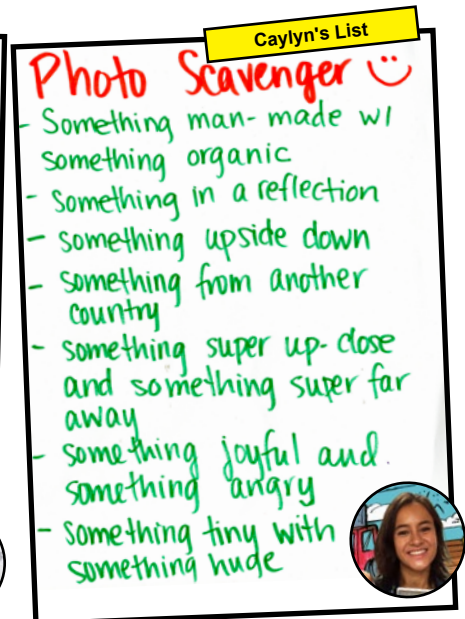 Caylyn's List
Photo Scavenger
- Something man-made w/
something organic
- Something in a reflection
- something upside down
- something from another
country
- something super up-close
and something super far
away
- something joyful and
something angry
- something tiny with
something huge